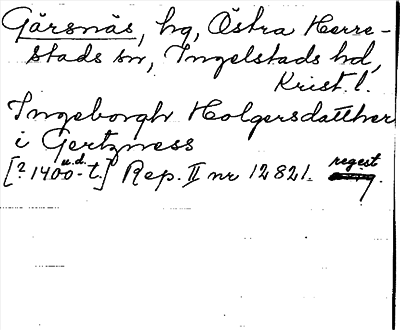 Gärsnäs, hg, Östra Herre-
stads sn, Ingelstads hd,
Krist. l.
Ingeborgh Holgersdatther
i Gertzness
u.d.
[? 1400-t.] Rep. II nr 12821. regest